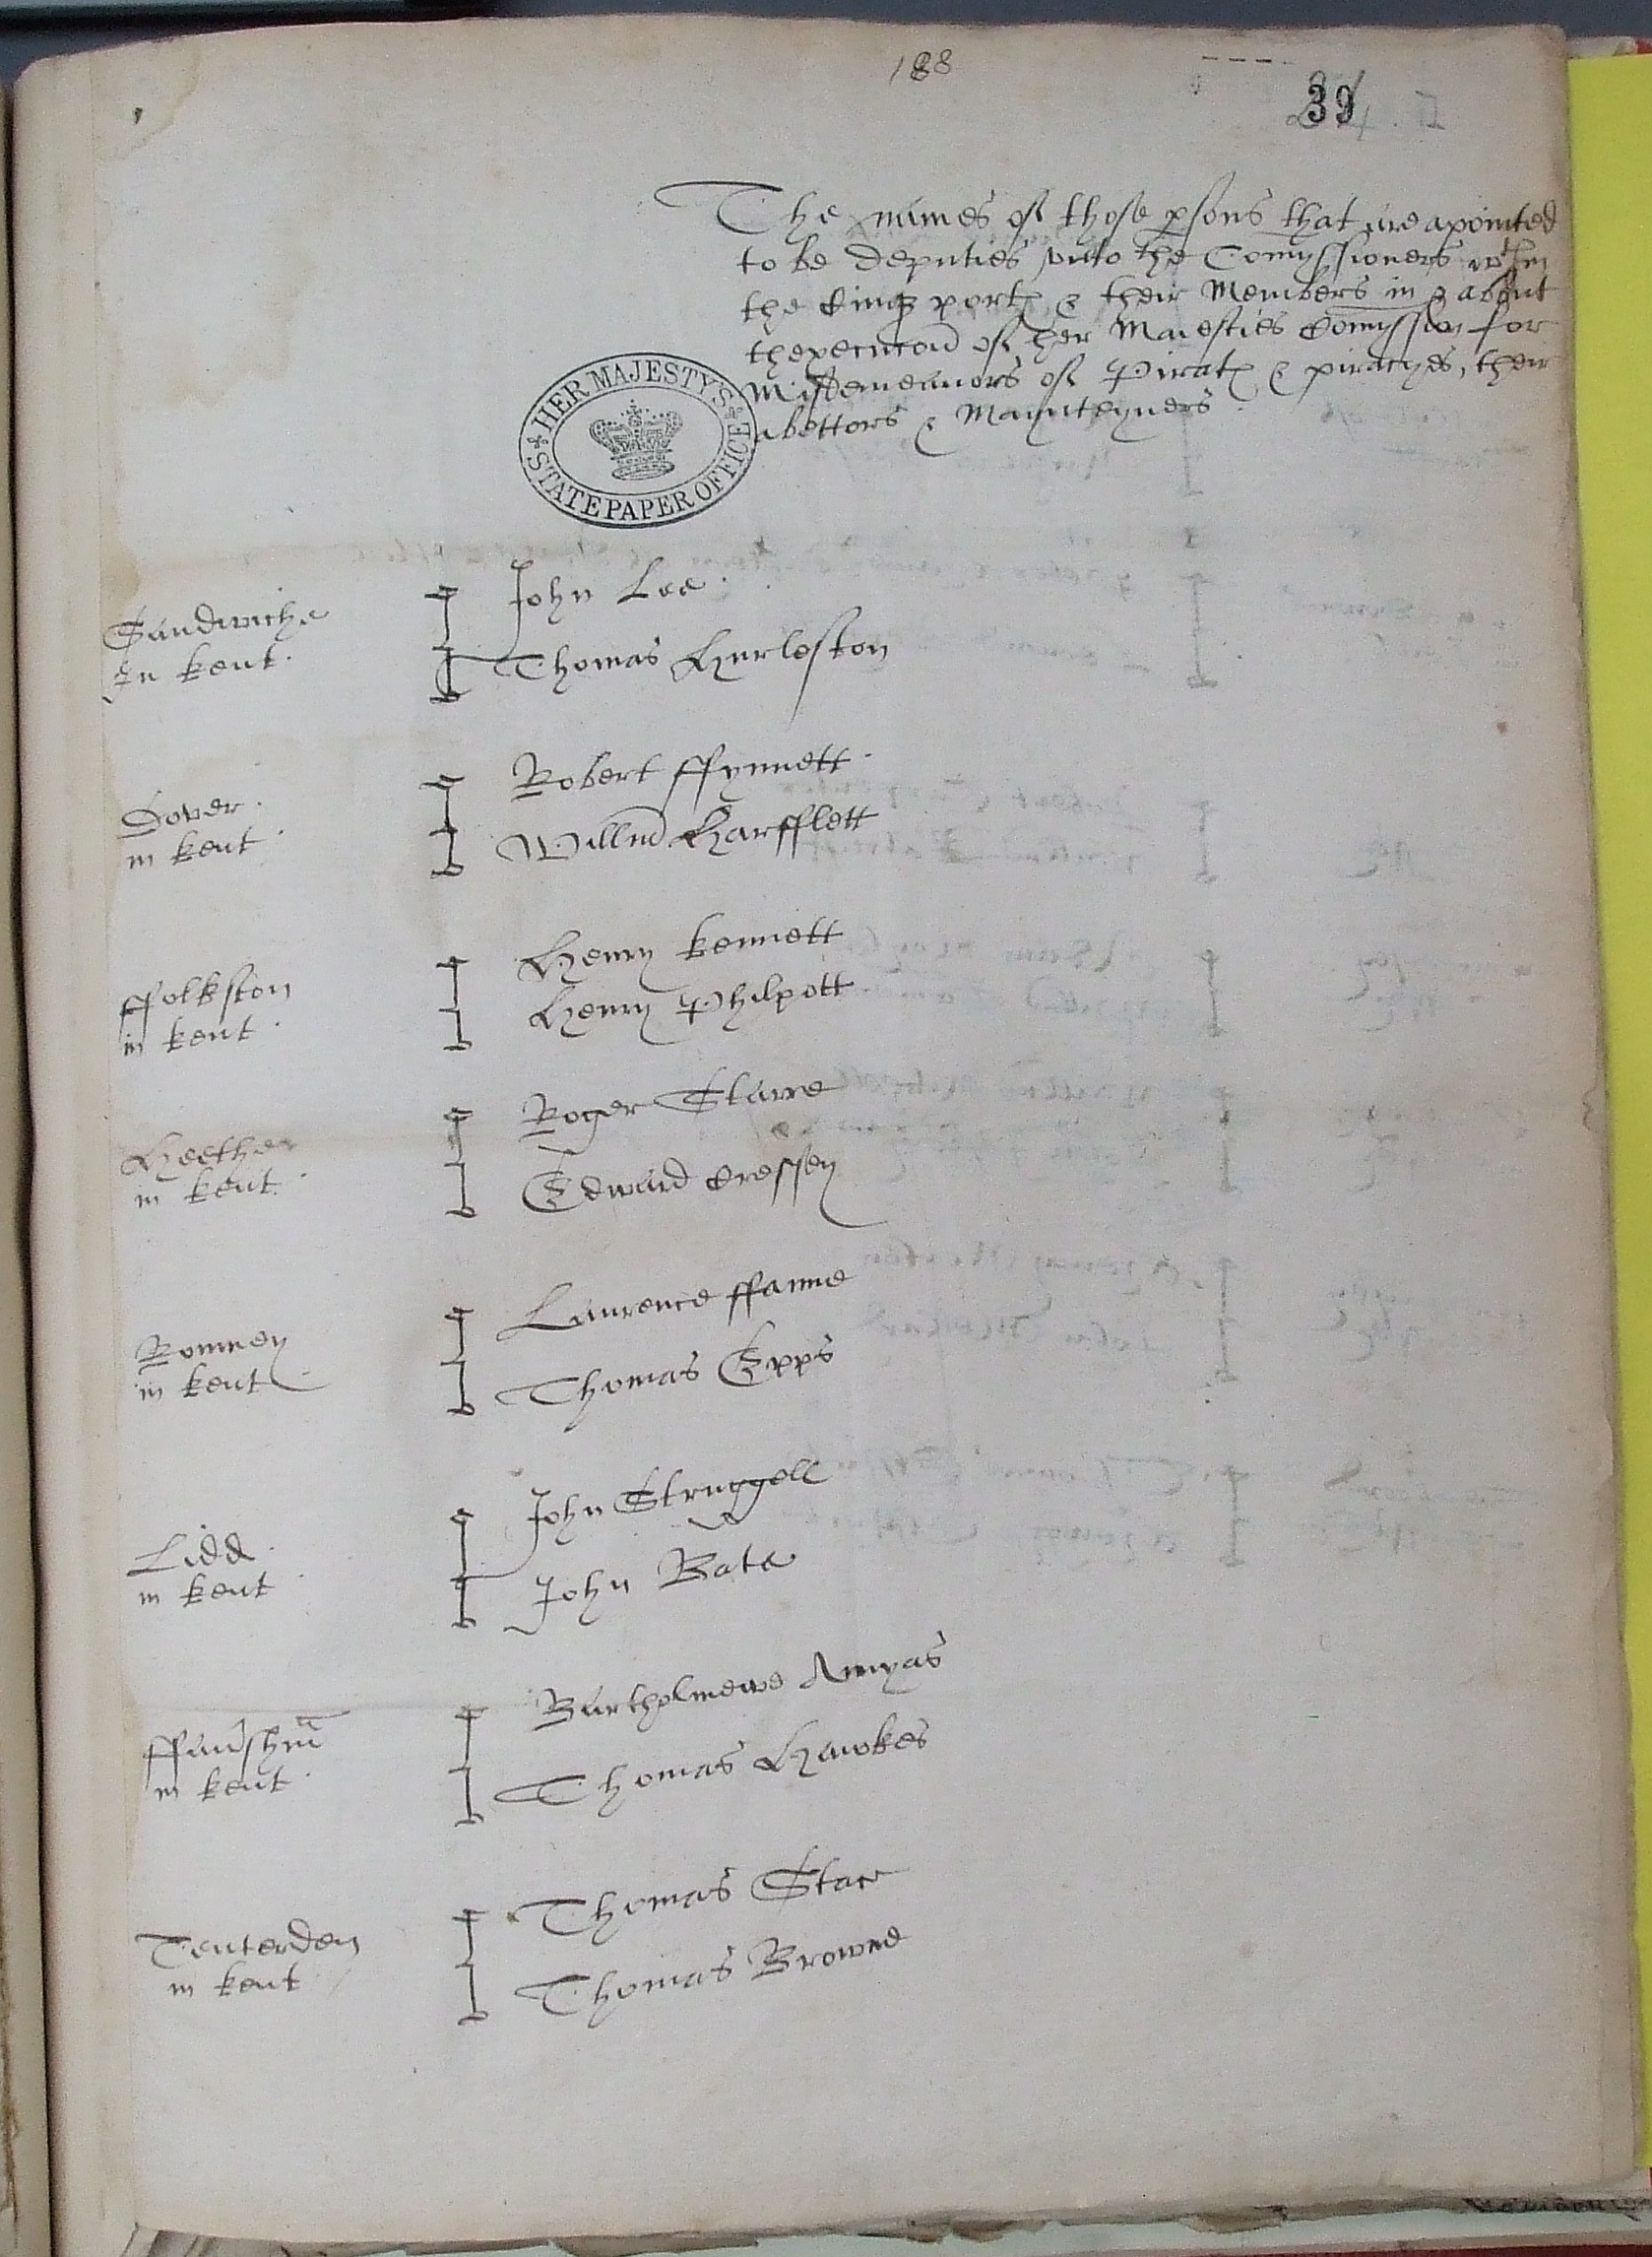 188
39
The names of those psons that are apointed
to be deputies vnto the Comyssioners wthin
the Cinq port & their Members in & about
thexecucon of her Maiesties Comyssion for
Misdemeanors of Pirat & piracyes, their
abettors & Maynteyners
HER MAJESTY'S STATE PAPER OFFICE
Sandwiche
In kent.
John Lee.
Thomas Hurleston
Dover.
in kent.
Robert ffynnett.
Willm Harfflett
ffolkston
in kent.
Henry kennett
Henry Philpott
Heethe
in kent.
Roger Starre
Edward Cressey
Romney
in kent.
Laurence ffanne
Thomas Epps
Lidd.
in kent.
John Struggell
John Bate
ffaushm
in kent.
Bartholmewe Amyas
Thomas Hawkes
Tenterden
in kent
Thomas Stace
Thomas Browne